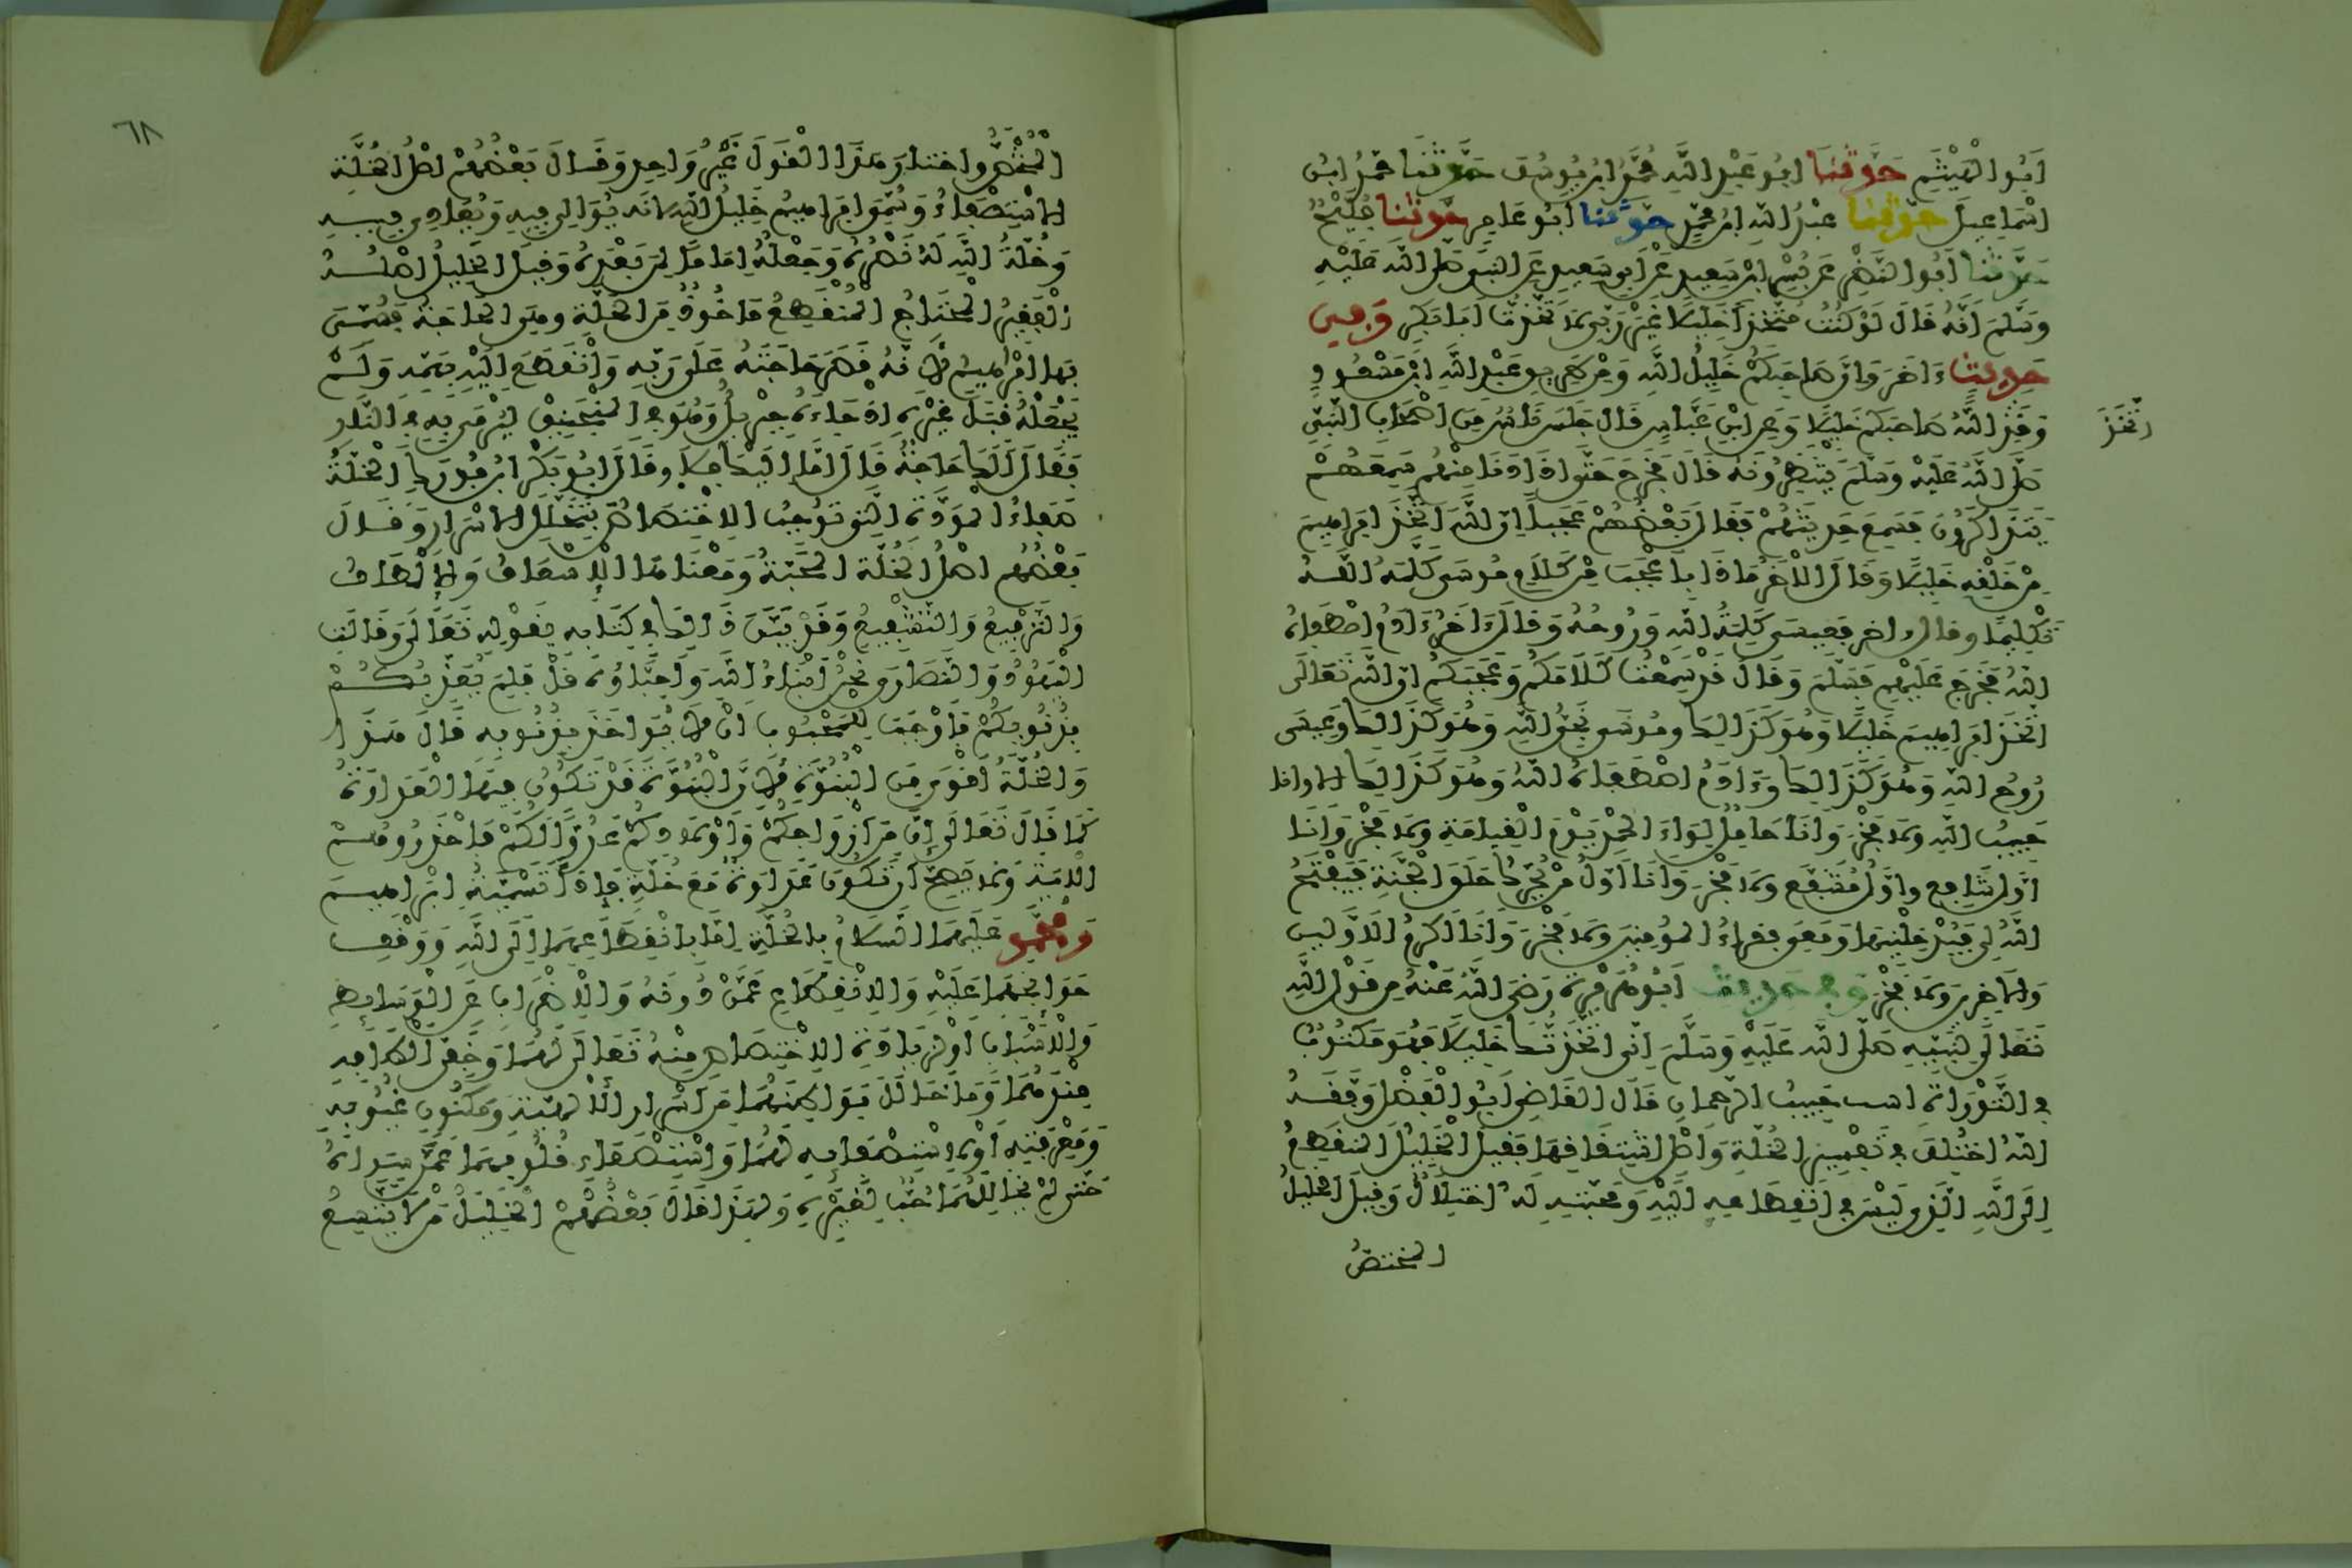 أَبُوا الْهَيْثَمِ حَدَّثَنَا ابُو عَبْدِ اللَّهِ مُحَمَّدُ ابْنُ يُوسُفَ حَدَّثَنَا مُحَمَّدُ ابْنُ
اسْمَاعِيلَ حَدَّثَنَا عَبْدُ اللَّهِ ابْنُ مُحَمَّدٍ حَدَّثَنَا أَبُو عَامِرٍ حَدَّثَنَا فُلَيْحٌ
حَدَّثَنَا أَبُوا النَّضْرِ عَن بُسْرِ ابْنِ سَعِيدٍ عَنْ أَبِي سَعِيدٍ عَنِ النَّبِيِّ صَلَّى اللَّهُ عَلَيْهِ
وَسَلَّمَ أَنَّهُ قَالَ لَوْ كُنْتُ مُتَّخِذًا خَلِيلًا غَيْرَ رَبِّي لَاتَّخَذْتُ أَبَا بَكْرٍ وَفِي
حَدِيثٍ ءَاخَرَ وَإِنَّ صَاحِبَكُمْ خَلِيلُ اللَّهِ وَمِنْ طَرِيقِ عَبْدِ اللَّهِ ابْنِ مَسْعُودٍ
وَقَدِ اللَّهُ صَاحِبَكُمْ خَلِيلًا وَعَنِ ابْنِ عَبَّاسٍ قَالَ جَلَسَ نَاسٌ مِنَ اصْحَابِ النَّبِيِّ
اتَّخَذَ
صَلَّى اللَّهُ عَلَيْهِ وَسَلَّمَ يَنْتَظِرُونَهُ قَالَ فَخَرَجَ حَتَّى إِذَا دَنَا مِنْهُمْ سَمِعَهُمْ
يَتَذَاكَرُونَ فَسَمِعَ حَدِيثَهُمْ فَقَالَ بَعْضُهُمْ عَجَبًا إِنَّ اللَّهَ اتَّخَذَ ابْرَاهِيمَ
مِنْ خَلْقِهِ خَلِيلًا وَقَالَ الْآخَرُ مَاذَا بِأَعْجَبَ مِنْ كَلَامِ مُوسَى كَلَّمَهُ اللَّهُ
تَكْلِيمًا وقال ءاخر فَعِيسَى كَلِمَةُ اللَّهِ وَرُوحُهُ وَقَالَ ءَاخَرُ ءَادَمُ اصْطَفَاهُ
اللَّهُ فَخَرَجَ عَلَيْهِمْ فَسَلَّمَ وَقَالَ قَدْ سَمِعْتُ كَلَامَكُمْ وَعَجَبَكُمْ إِنَّ اللَّهَ تَعَالَى
اتَّخَذَ ابْرَاهِيمَ خَلِيلًا وَهُوَ كَذَالِكَ وَمُوسَى نَجِيُّ اللَّهِ وَهُوَ كَذَالِكَ وَعِيسَى
رُوحُ اللَّهِ وَهُوَ كَذَالِكَ وَءَادَمُ اصْطَفَاهُ اللَّهُ وَهُوَ كَذَالِكَ الا وانا
حَبِيبُ اللَّهِ وَلَا فَخْرَ وَأَنَا حَامِلُ لِوَاءِ الْحَمْدِ يَوْمَ الْقِيَامَةِ وَلَا فَخْرَ وَأَنَا
أَوَّلُ شَافِعٍ وأَوَّلُ مُشَفَّعٍ وَلَا فَخْرَ وَأَنَا أَوَّلُ مَنْ يُحَرِّكُ حَلَقَ الْجَنَّةِ فَيَفْتَحُ
اللَّهُ لِي فَيُدْخِلْنِيهَا وَمَعِي فُقَرَاءُ الْمُؤمِنِينَ وَلَا فَخْرَ وَأَنَا أَكْرَمُ الْأَوَّلِينَ
وَالْآخِرِينَ وَلَا فَخْرَ وَفِي حَدِيثِ أَبِي هُرَيْرَةَ رَضِيَ اللَّهُ عَنْهُ مِن قَوْلِ اللَّهِ
تَعَالَى لِنَبِيِّهِ صَلَّى اللَّهُ عَلَيْهِ وَسَلَّمَ إِنِّي اتَّخَذْتُكَ خَلِيلًا فَهُوَ مَكْتُوبٌ
فِي التَّوْرَاةِ انت حَبِيبُ الرَّحْمَانِ قَالَ الْقَاضِي أَبُوا الْفَضْلِ وَفَّقَهُ
اللَّهُ اخْتُلِفَ فِي تَفْسِيرِ الْخُلَّةِ وَأَصْلِ اشْتِقَاقِهَا فَقِيلَ الْخَلِيلُ الْمُنْقَطِعُ
إِلَى اللَّهِ الَّذِي لَيْسَ فِي انْقِطَاعِهِ إِلَيْهِ وَمَحَبَّتِهِ لَهُ اخْتِلَالٌ وَقِيلَ الْخَلِيلُ
المختصُّ
٦٨
الْمُخْتَصُّ وَاخْتَارَ هَذَا الْقَوْلَ غَيْرُ وَاحِدٍ وَقَالَ بَعْضُهُمْ اصْلُ الْخُلَّةِ
الِاسْتِصْفَاءُ وَسُمِّيَ ابْرَاهِيمُ خَلِيلُ اللَّهِ لانه يُوَالِي فِيهِ وَيُعَادِي فِيهِ
وَخُلَّةُ اللَّهِ لَهُ نَصْرُهُ وَجَعْلُهُ إِمَامًا لِمَنْ بَعْدَهُ وَقِيلَ الْخَلِيلُ أَصْلُهُ
الْفَقِيرُ الْمُحْتَاجُ الْمُنْقَطِعُ مَاخُوذٌ مِنَ الْخَلَّةِ وهِيَ الْحَاجَةُ فَسُمِّيَ
بِهَا ابْرَاهِيمُ لِأَنَّهُ قَصَرَ حَاجَتَهُ عَلَى رَبِّهِ وَانْقَطَعَ إِلَيْهِ بِهَمِّهِ وَلَمْ
يَجْعَلْهُ قِبَلَ غَيْرِهِ إِذْ جَاءَهُ جِبْرِيلُ وَهُوَ فِي الْمَنْجَنِيقِ لِيُرْمَى بِهِ فِي النَّارِ
فَقَالَ أَلَكَ حَاجَةٌ قَالَ أَمَّا إِلَيْكَ فَلَا وقَالَ أَبُو بَكْرِ ابْنُ فُورَكٍ الْخُلَّةُ
صَفَاءُ الْمَوَدَّةِ الَّتِي تُوجِبُ الِاخْتِصَاصَ بِتَخَلُّلِ الْأَسْرَارِ وَقَالَ
بَعْضُهُم اصْلُ الْخُلَّةِ الْمَحَبَّةُ وَمَعْنَاهَا الْإِسْعَافُ وَالْإِلْطَافُ
وَالتَّرْفِيعُ وَالتَّشْفِيعُ وَقَدْ بَيَّنَ ذَالِكَ فِي كِتَابِهِ بِقَوْلِهِ تَعَالَى وَقَالَتِ
الْيَهُودُ وَالنَّصَارَى نَحْنُ أَبْنَاءُ اللَّهِ وَأَحِبَّاؤُهُ قُلْ فَلِمَ يُعَذِّبُكُمْ
بِذُنُوبِكُمْ فَأَوْجَبَ لِلْمَحْبُوبِ أَنْ لَا يُؤَاخَذَ بِذُنُوبِهِ قَالَ هَذَا
وَالْخُلَّةُ أَقْوَى مِنَ الْبُنُوَّةِ لِأَنَّ الْبُنُوَّةَ قَدْ تَكُونُ فِيهَا الْعَدَاوَةُ
كَمَا قَالَ تَعَالَى إِنَّ مِنْ أَزْوَاجِكُمْ وَأَوْلَادِكُمْ عَدُوًّا لَكُمْ فَاحْذَرُوهُمْ
الْآيَةَ وَلَا يَصِحُّ أَنْ تَكُونَ عَدَاوَةٌ مَعَ خُلَّةٍ فَإِذًا تَسْمِيَةُ إِبْرَاهِيمَ
وَمُحَمَّدٍ عَلَيْهِمَا السَّلَامُ بِالْخُلَّةِ إِمَّا بِانْقِطَاعِهِمَا إِلَى اللَّهِ وَوَقْفِ
حَوَائِجِهِمَا عَلَيْهِ وَالِانْقِطَاعِ عَمَّنْ دُونَهُ وَالْإِضْرَابِ عَنِ الْوَسَائِطِ
وَالْأَسْبَابِ أَوْ لِزِيَادَةِ الِاخْتِصَاصِ مِنْهُ تَعَالَى لَهُمَا وَخَفِيِّ الْطَافِهِ
عِنْدَهُمَا وَمَا خَالَلَ بَوَاطِنَهُمَا مِنْ أَسْرَارِ الْإِلَهِيَّةِ وَمَكْنُونِ غُيُوبِهِ
وَمَعْرِفَتِهِ أَوْ لِاسْتِصْفَائِهِ لَهُمَا وَاسْتِصْفَاءِ قُلُوبِهِمَا عَمَّنْ سِوَاهُ
حَتَّى لَمْ يُخَالِلْهُمَا حُبٌّ لِغَيْرِهِ وَلِهَذَا قَالَ بَعْضُهُمْ الْخَلِيلُ مَنْ لَا يَتَّسِعُ